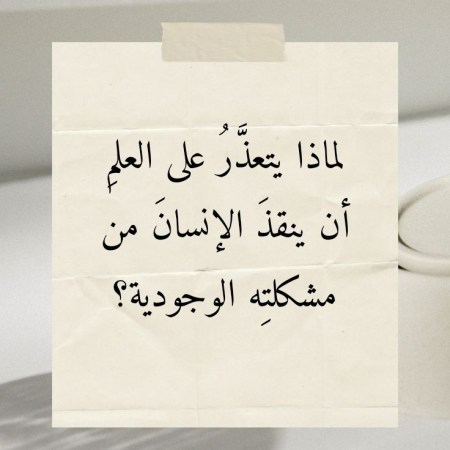 لماذا يتعذَّرُ على العلمِ
أن ينقذَ الإنسانَ من
مشكلتِه الوجودية؟